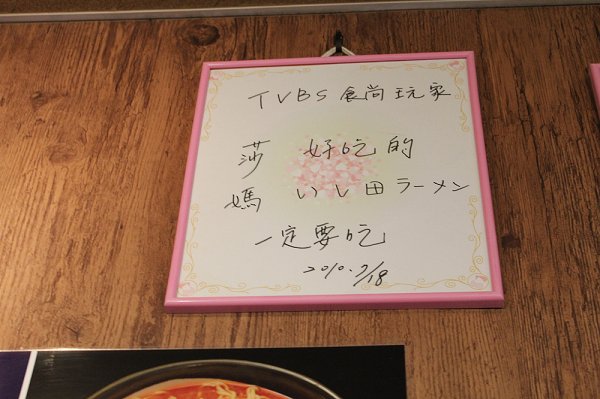 TVBS 食尚玩家
莎媽 好吃的
いし田ラーメン
一定要吃
2010.7/18